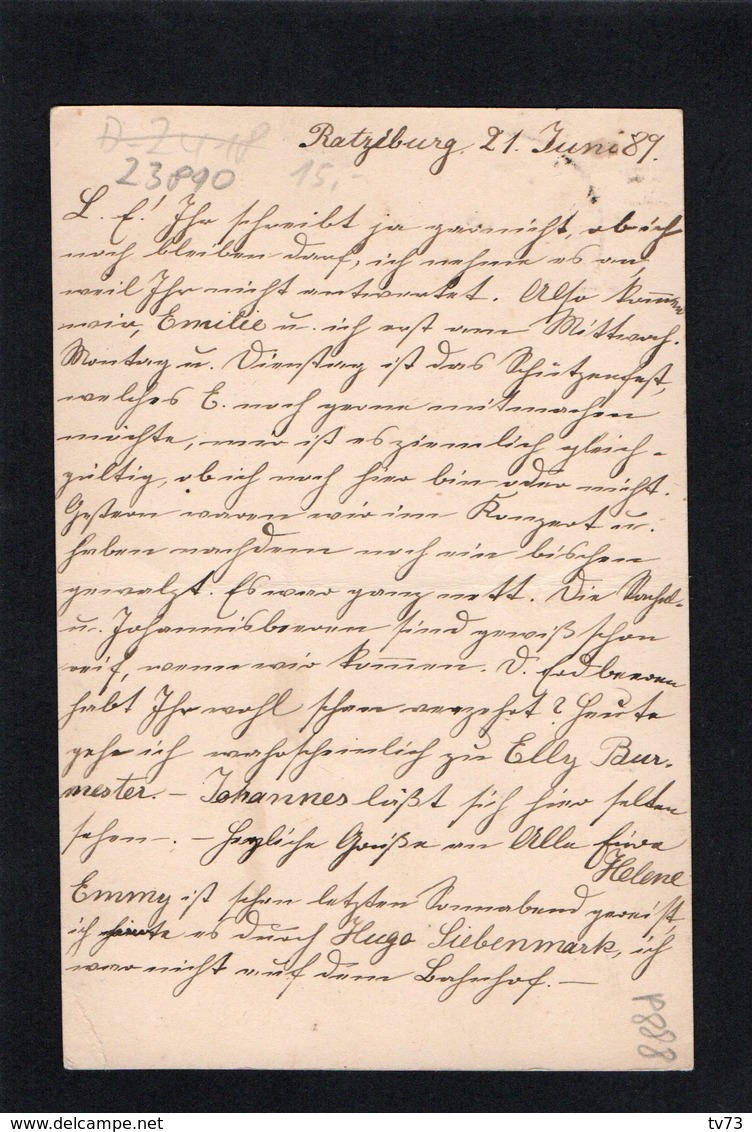 D-Z418
23890 15,-
Ratzeburg. 21. Juni 89.
L. E.! Ihr schreibt ja garnicht, ob ich
noch bleiben darf, ich nehme es an,
weil Ihr nicht antwortet. Also kommen
wir, Emilie u. ich erst am Mittwoch.
Montag u. Dienstag ist das Schützenfest,
welches E. noch gerne mitmachen
möchte, mir ist es ziemlich gleich-
gültig, ob ich noch hier bin oder nicht.
Gestern waren wir im Konzert u.
haben nachdem noch ein bischen
gewalzt. Es war ganz nett. Die Stachel-
u. Johannisbeeren sind gewiß schon
reif, wenn wir kommen. D. Erdbeeren
habt Ihr wohl schon verzehrt? Heute
gehe ich wahrscheinlich zu Elly Bur-
mester. – Johannes läßt sich hier selten
sehen. – Herzliche Grüße an Alle Eure
Helene
Emmy ist schon letzten Sonnabend gereist,
ich hörte es durch Hugo Siebenmark, ich
war nicht auf dem Bahnhof. –
P888
delcampe.net
tv73